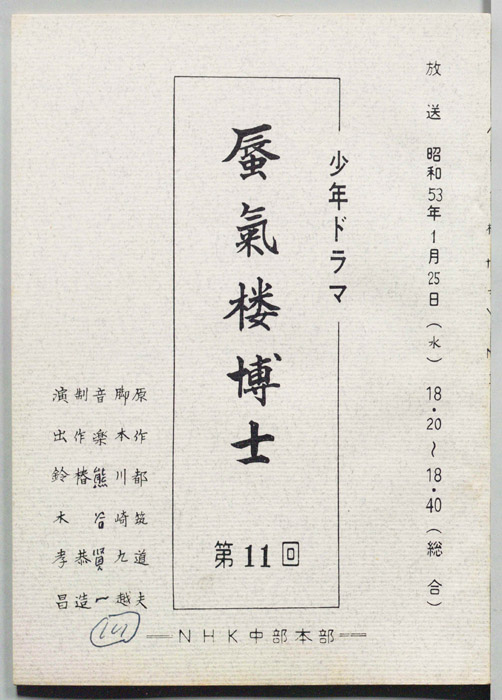 放送 昭和53年1月25日（水） 18・20～18・40（総合）
少年ドラマ
蜃氣楼博士
第11回
原作 都筑道夫
脚本 川崎九越
音楽 熊谷賢一
制作 椿恭造
演出 鈴木孝昌
NHK中部本部